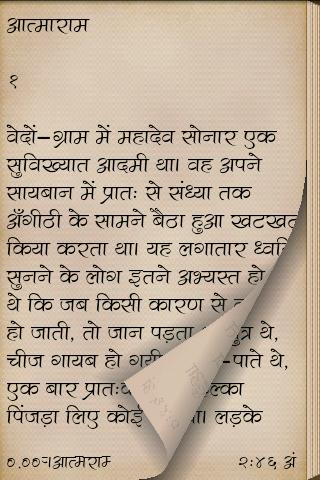 आत्माराम
१
वेदों–ग्राम में महादेव सोनार एक
सुविख्यात आदमी था। वह अपने
सायबान में प्रातः से संध्या तक
अँगीठी के सामने बैठा हुआ खटखट
किया करता था। यह लगातार ध्वनि
सुनने के लोग इतने अभ्यस्त हो
थे कि जब किसी कारण से
हो जाती, तो जान पड़ता थे,
चीज गायब हो गयी -पाते थे,
एक बार प्रातः
पिंजड़ा लिए कोई लड़के
०.००%आत्माराम २:४६ अं